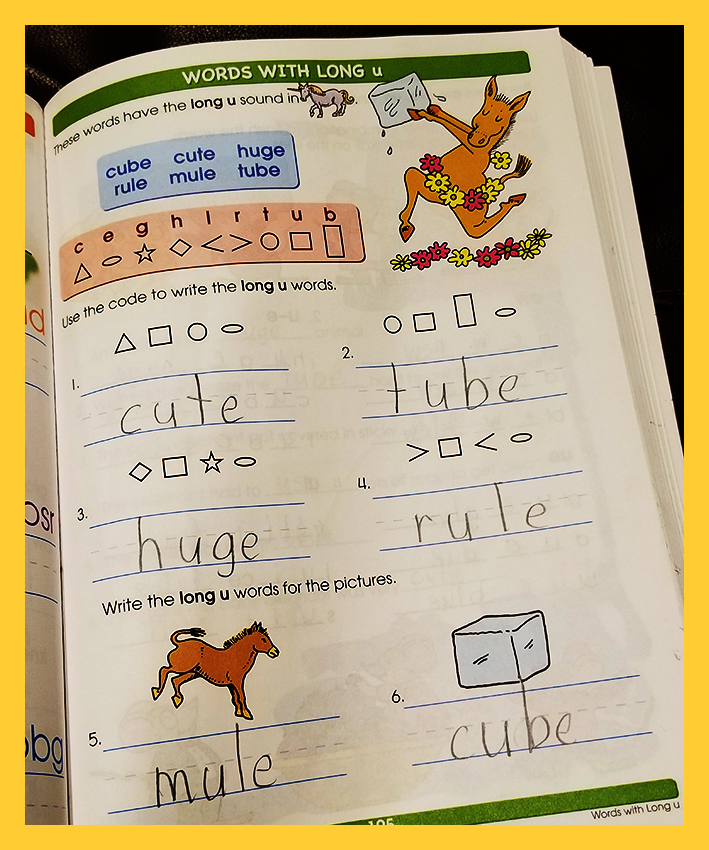 WORDS WITH LONG u
These words have the long u sound in
cube cute huge
rule mule tube
c e g h l r t u b
Use the code to write the long u words.
1. cute
2. tube
3. huge
4. rule
Write the long u words for the pictures.
5. mule
6. cube
195
Words with Long u
d
osr
obg